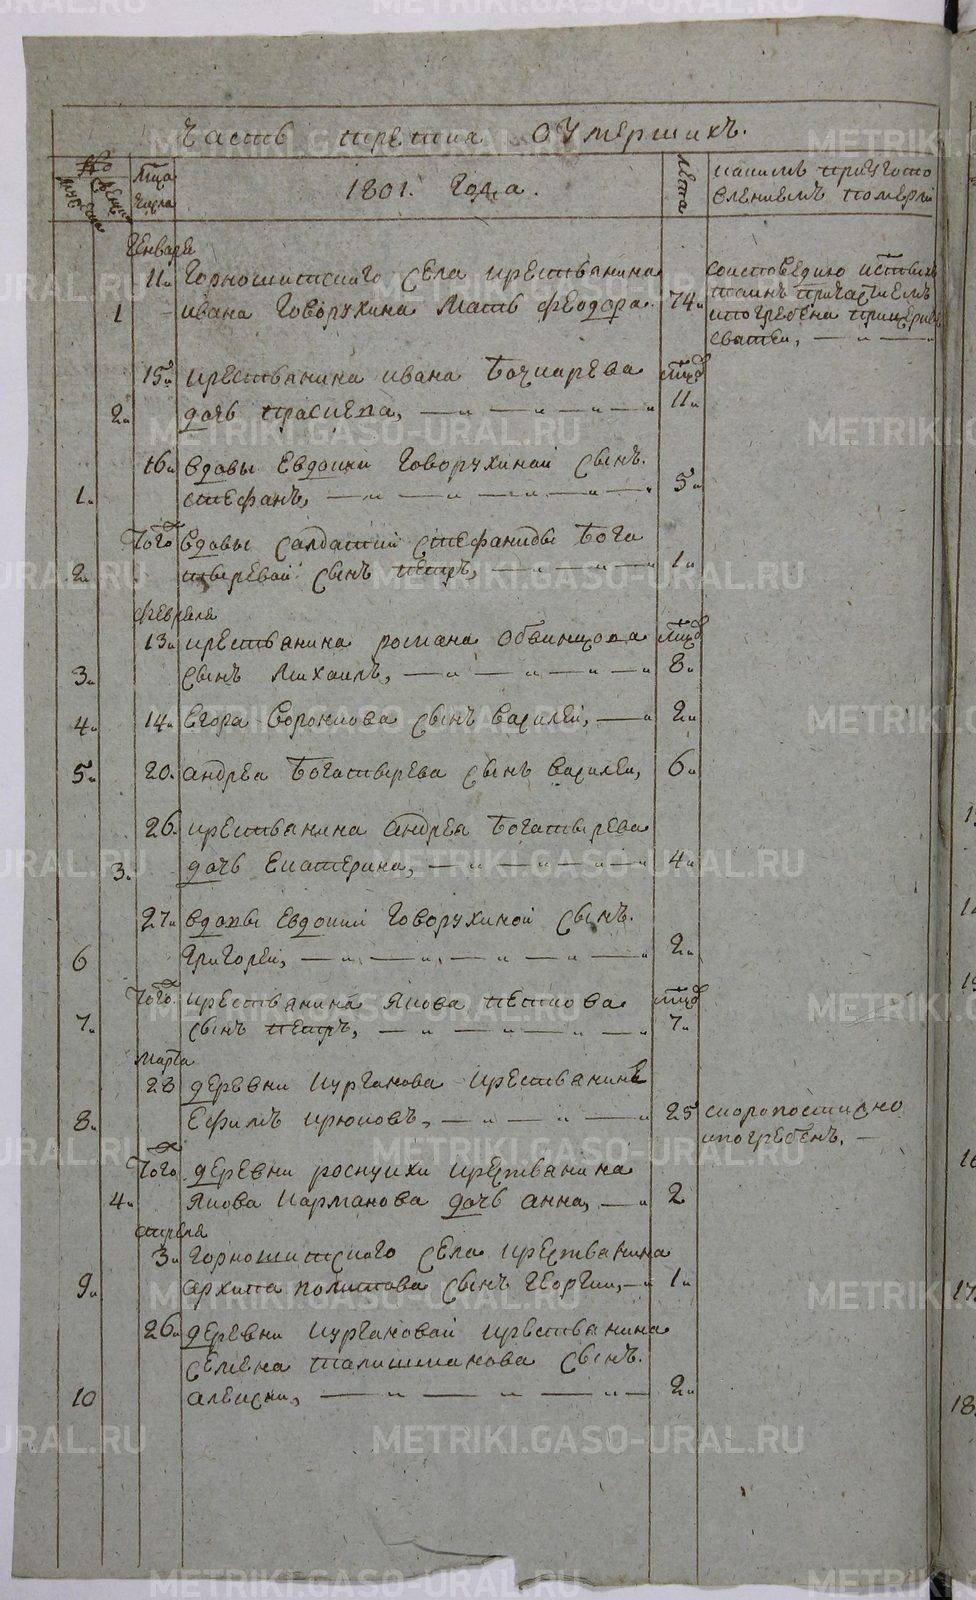 Часть третия о умершихъ.
Число
Мца
числа
1801. года.
Лета
какимъ приугото
влениемъ померли
Генваря
11 Горношитского села крестьянина
1 Ивана Говорухина мать Феодора. 74
со исповедию и святыхъ
таинъ причастиемъ
и погребена при церкве
святей,
15 крестьянина Ивана Бочкарева мцовъ
2 дочь Праскева, 11
16 вдовы Евдокии Говорухиной сынъ
1 Стефанъ, 5
Того вдовы салдатки Стефаниды Бога
2 тыревой сынъ Петръ, 1
Февраля
13 крестьянина Романа Обвинцова мцовъ
3 сынъ Михаилъ, 8
4 14 Егора Воронкова сынъ Василей, 2
5 20 Андрея Богатырева сынъ Василей, 6
26 крестьянина Андрея Богатырева
3 дочь Екатерина, 4
27 вдовы Евдокии Говорухиной сынъ
6 Григорей, 2
Того крестьянина Якова Петкова мцовъ
7 сынъ Петръ, 7
Марта
23 деревни Курганова крестьянинъ
8 Ефимъ Крюковъ, 25 скоропостижно
и погребенъ,
Того деревни Роскуихи крестьянина
4 Якова Карманова дочь Анна, 2
Апреля
3 Горношитского села крестьянина
9 Архипа Политова сынъ Георгии, 1
26 деревни Кургановой крестьянина
Семена Талышманова сынъ
10 Алексии, 2
METRIKI.GASO-URAL.RU